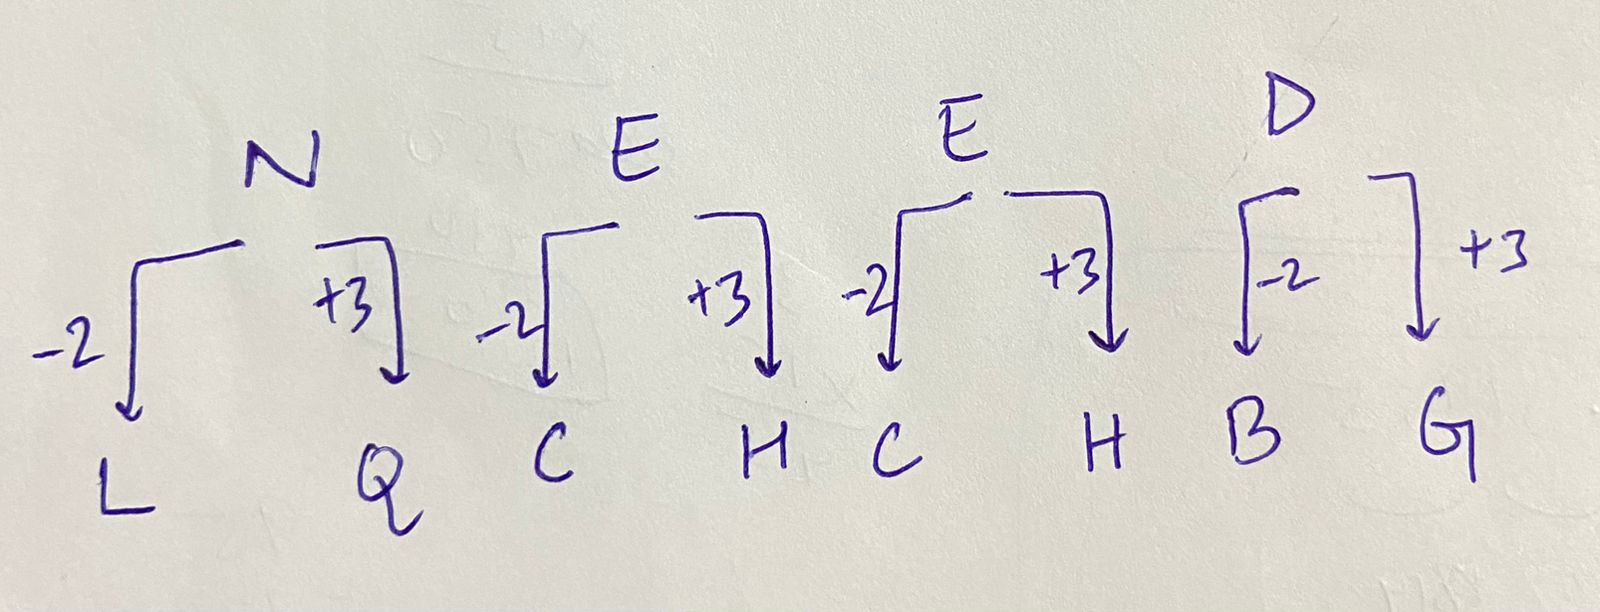 N E E D
-2 +3 -2 +3 -2 +3 -2 +3
L Q C H C H B G